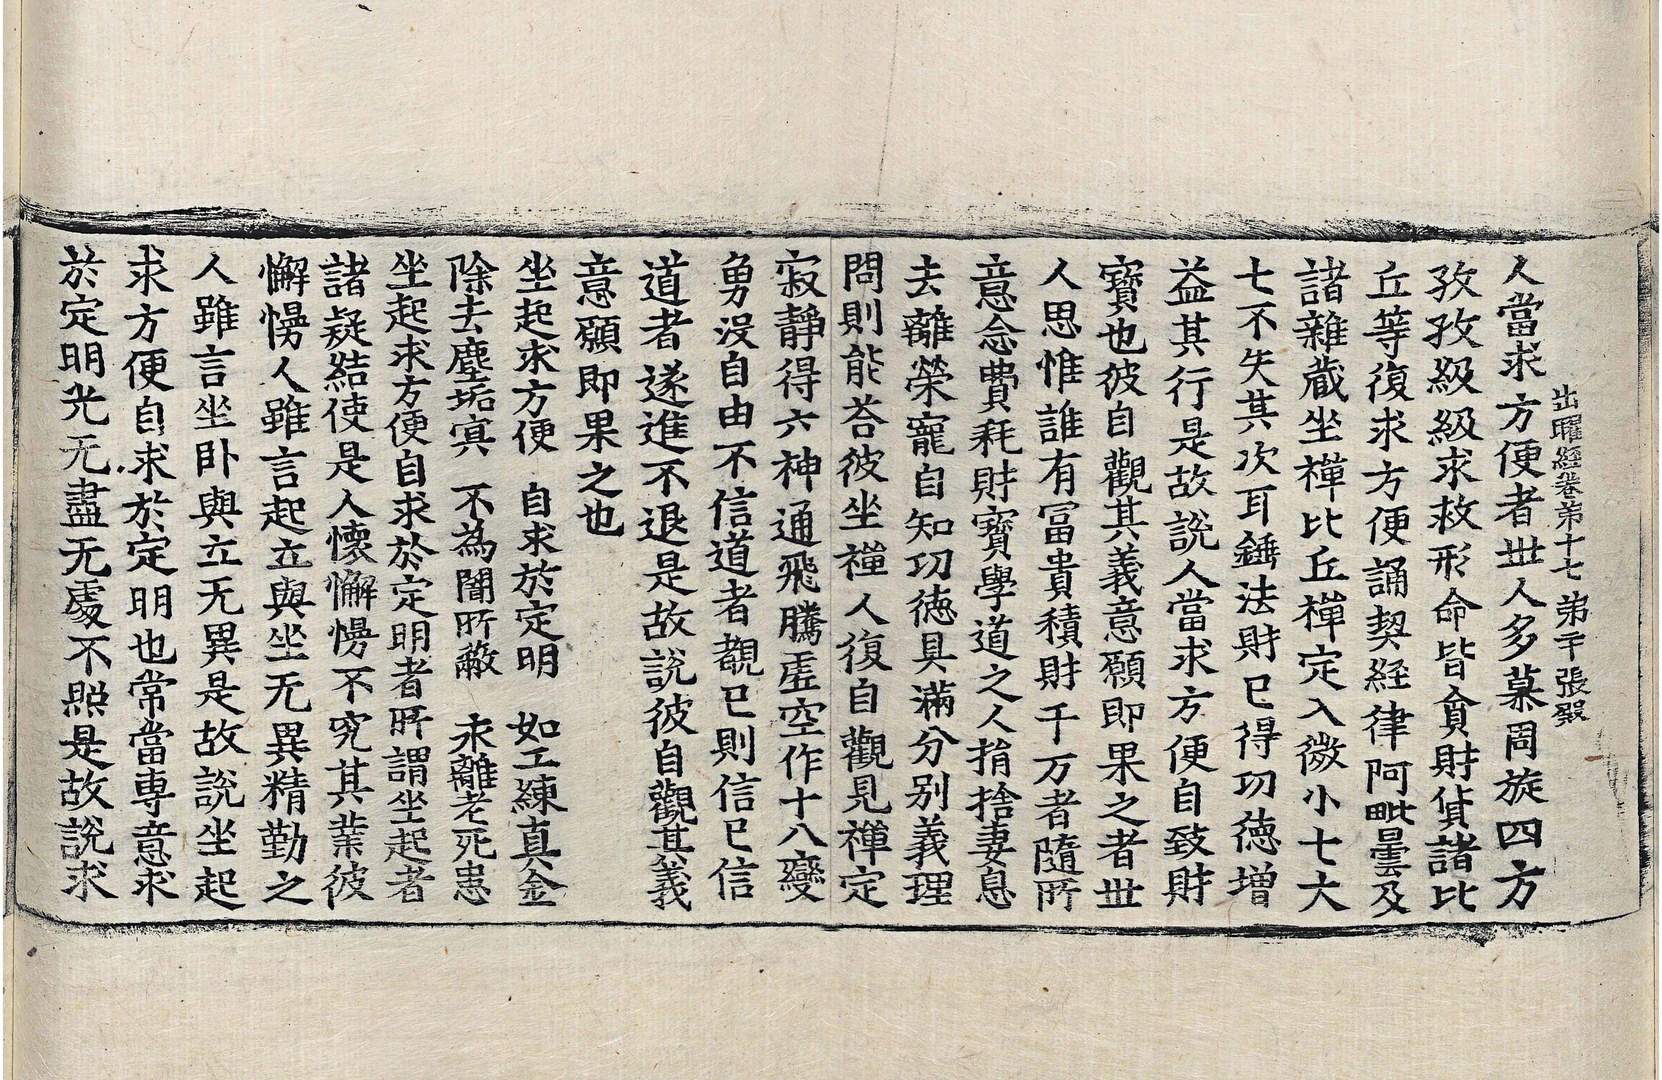 出曜經卷第十七 第千張 殷
人當求方便者世人多慕周旋四方
孜孜級級求救形命皆貪財貨諸比
丘等復求方便誦契經律阿毗曇及
諸雜藏坐禪比丘禪定入微小七大
七不失其次耳錘法財已得功德增
益其行是故說人當求方便自致財
寶也彼自觀其義意願即果之者世
人思惟誰有冨貴積財千万者隨所
意念費耗財寶學道之人捐捨妻息
去離榮寵自知功德具滿分別義理
問則能荅彼坐禪人復自觀見禪定
寂靜得六神通飛騰虛空作十八變
勇沒自由不信道者觀已則信已信
道者遂進不退是故說彼自觀其義
意願即果之也
坐起求方便　自求於定明　如工練真金
除去塵垢冥　不為闇所蔽　永離老死患
坐起求方便自求於定明者所謂坐起者
諸疑結使是人懷懈慢不究其業彼
懈慢人雖言起立與坐无異精勤之
人雖言坐臥與立无異是故說坐起
求方便自求於定明也常當專意求
於定明光无盡无處不照是故說求